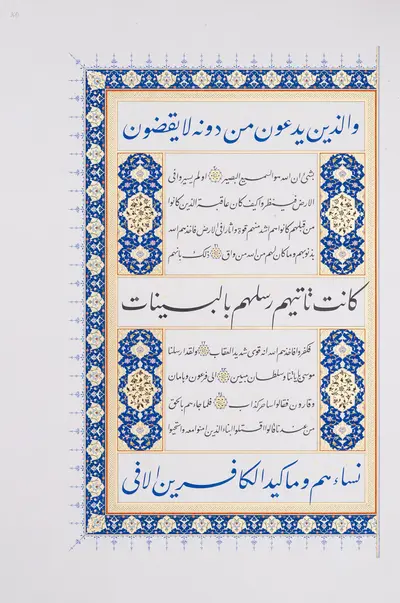 والذین یدعون من دونه لا یقضون
بشئ ان الله هو السمیع البصیر اولم یسیروا فی
الارض فینظروا کیف کان عاقبة الذین کانوا
من قبلهم کانوا هم اشد منهم قوة واثارا فی الارض فاخذهم الله
بذنوبهم وما کان لهم من الله من واق ذلک بانهم
کانت تاتیهم رسلهم بالبینات
فکفروا فاخذهم الله انه قوی شدید العقاب ولقد ارسلنا
موسی بایاتنا وسلطان مبین الی فرعون وهامان
وقارون فقالوا ساحر کذاب فلما جاءهم بالحق
من عندنا قالوا اقتلوا ابناء الذین امنوا معه واستحیوا
نساءهم وما کید الکافرین الا فی